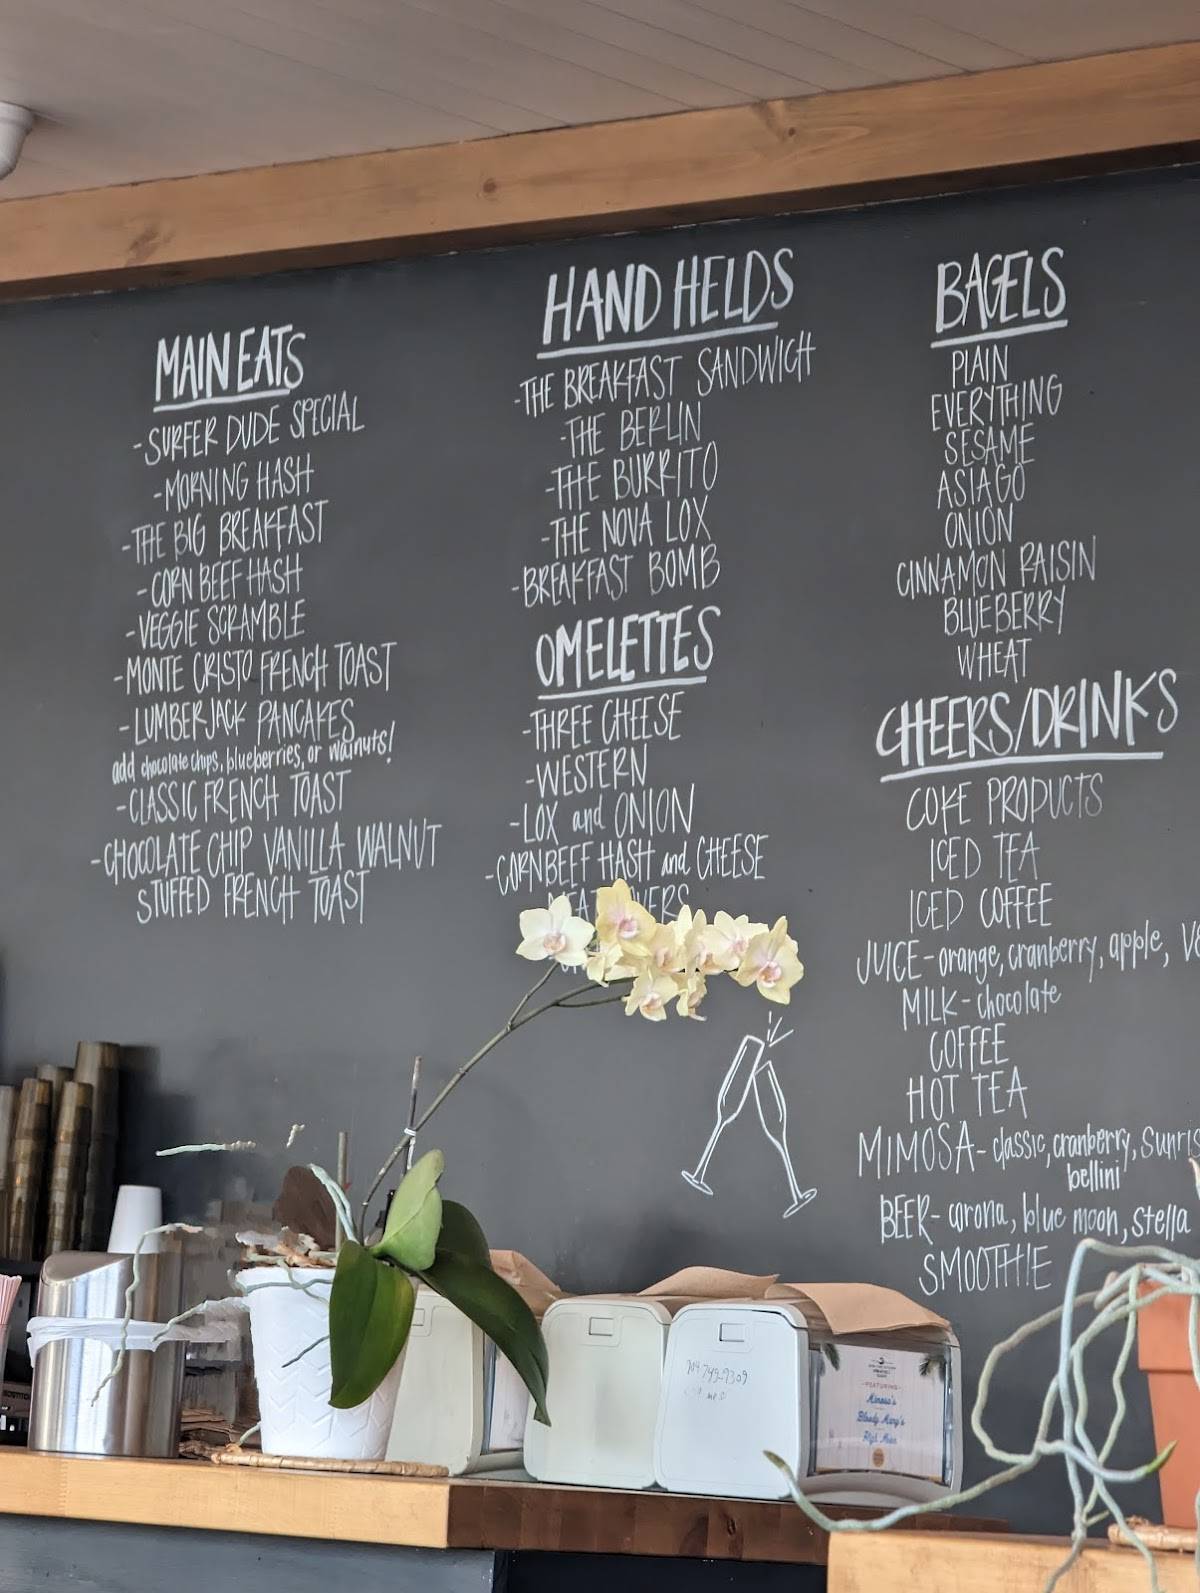 MAIN EATS
-SURFER DUDE SPECIAL
-MORNING HASH
-THE BIG BREAKFAST
-CORN BEEF HASH
-VEGGIE SCRAMBLE
-MONTE CRISTO FRENCH TOAST
-LUMBERJACK PANCAKES
add chocolate chips, blueberries, or walnuts!
-CLASSIC FRENCH TOAST
-CHOCOLATE CHIP VANILLA WALNUT
STUFFED FRENCH TOAST
HAND HELDS
-THE BREAKFAST SANDWICH
-THE BERLIN
-THE BURRITO
-THE NOVA LOX
-BREAKFAST BOMB
OMELETTES
-THREE CHEESE
-WESTERN
-LOX and ONION
-CORNBEEF HASH and CHEESE
BAGELS
PLAIN
EVERYTHING
SESAME
ASIAGO
ONION
CINNAMON RAISIN
BLUEBERRY
WHEAT
CHEERS/DRINKS
COKE PRODUCTS
ICED TEA
ICED COFFEE
JUICE-orange, cranberry, apple,
MILK-chocolate
COFFEE
HOT TEA
MIMOSA-classic, cranberry, Sunris
bellini
BEER-corona, blue moon, stella
SMOOTHIE
-FEATURING-
Mimosa's
Bloody Mary's
High Noon